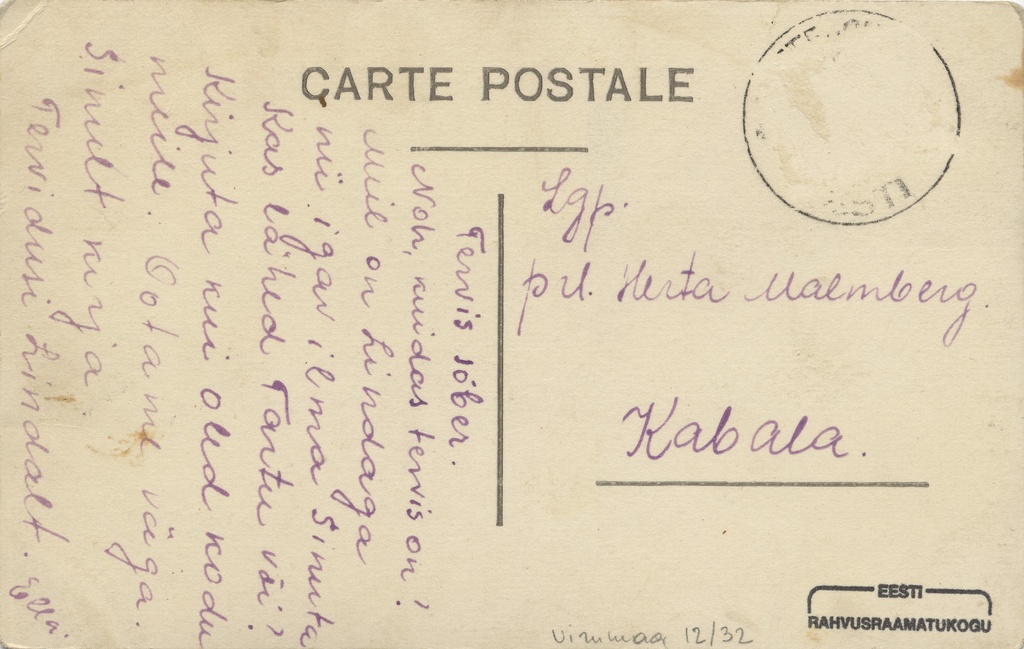 CARTE POSTALE
ESTI
Tervis sõber.
Noh, kuidas tervis on!
Meil on Lindaga
nii igav ilma Sinuta
Kas lähed Tartu või?
Kirjuta kui oled kodu
meile. Ootame väga.
Sinult kirja
Tervidusi Lindalt. Ella.
Lgp.
prl. Herta Malmberg.
Kabala.
EESTI
RAHVUSRAAMATUKOGU
12/32